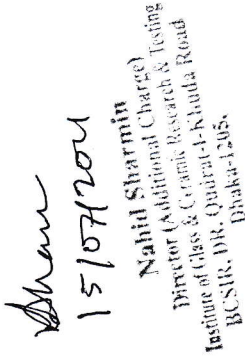 15/07/2011
Nahid Sharmin
Director (Additional Charge)
Institute of Glass & Ceramic Research & Testing
BCSIR, DR. Qudrat-I-Khuda Road
Dhaka-1205.